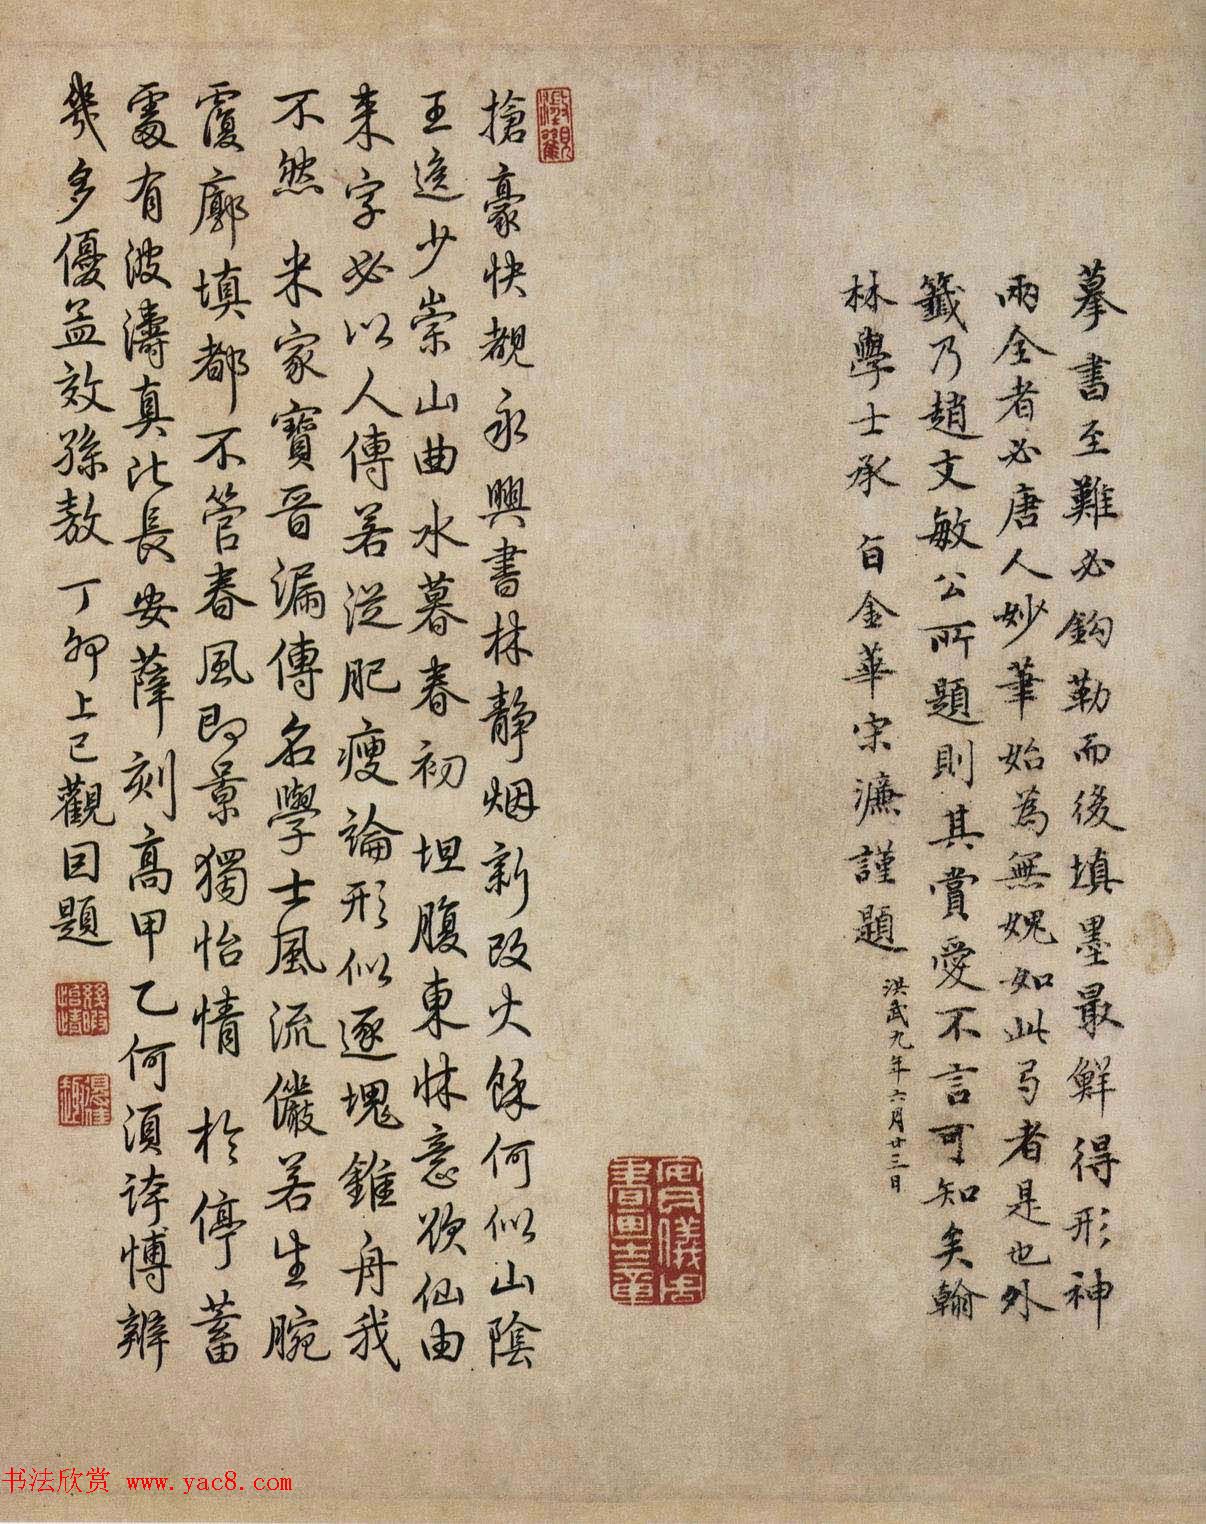 摹書至難必鈎勒而後填墨最鮮得形神
兩全者必唐人妙筆始為無媿如此弓者是也外
籤乃趙文敏公所題則其賞愛不言可知矣翰
林學士承 旨金華宋濂謹題 洪武九年六月廿三日
搶豪快覩永興書林静烟新改火餘何似山陰
王逸少崇山曲水暮春初 坦腹東牀意欲仙由
来字必以人傳若從肥瘦論形似逐塊錐舟我
不然 米家寶晋漏傳名學士風流儼若生腕
覆廓填都不管春風即景獨怡情 於停蓄
處有波濤真比長安薛刻高甲乙何須誇博辨
幾多優孟效孫敖 丁卯上巳觀因題
書畫之章
書法欣赏 www.yac8.com